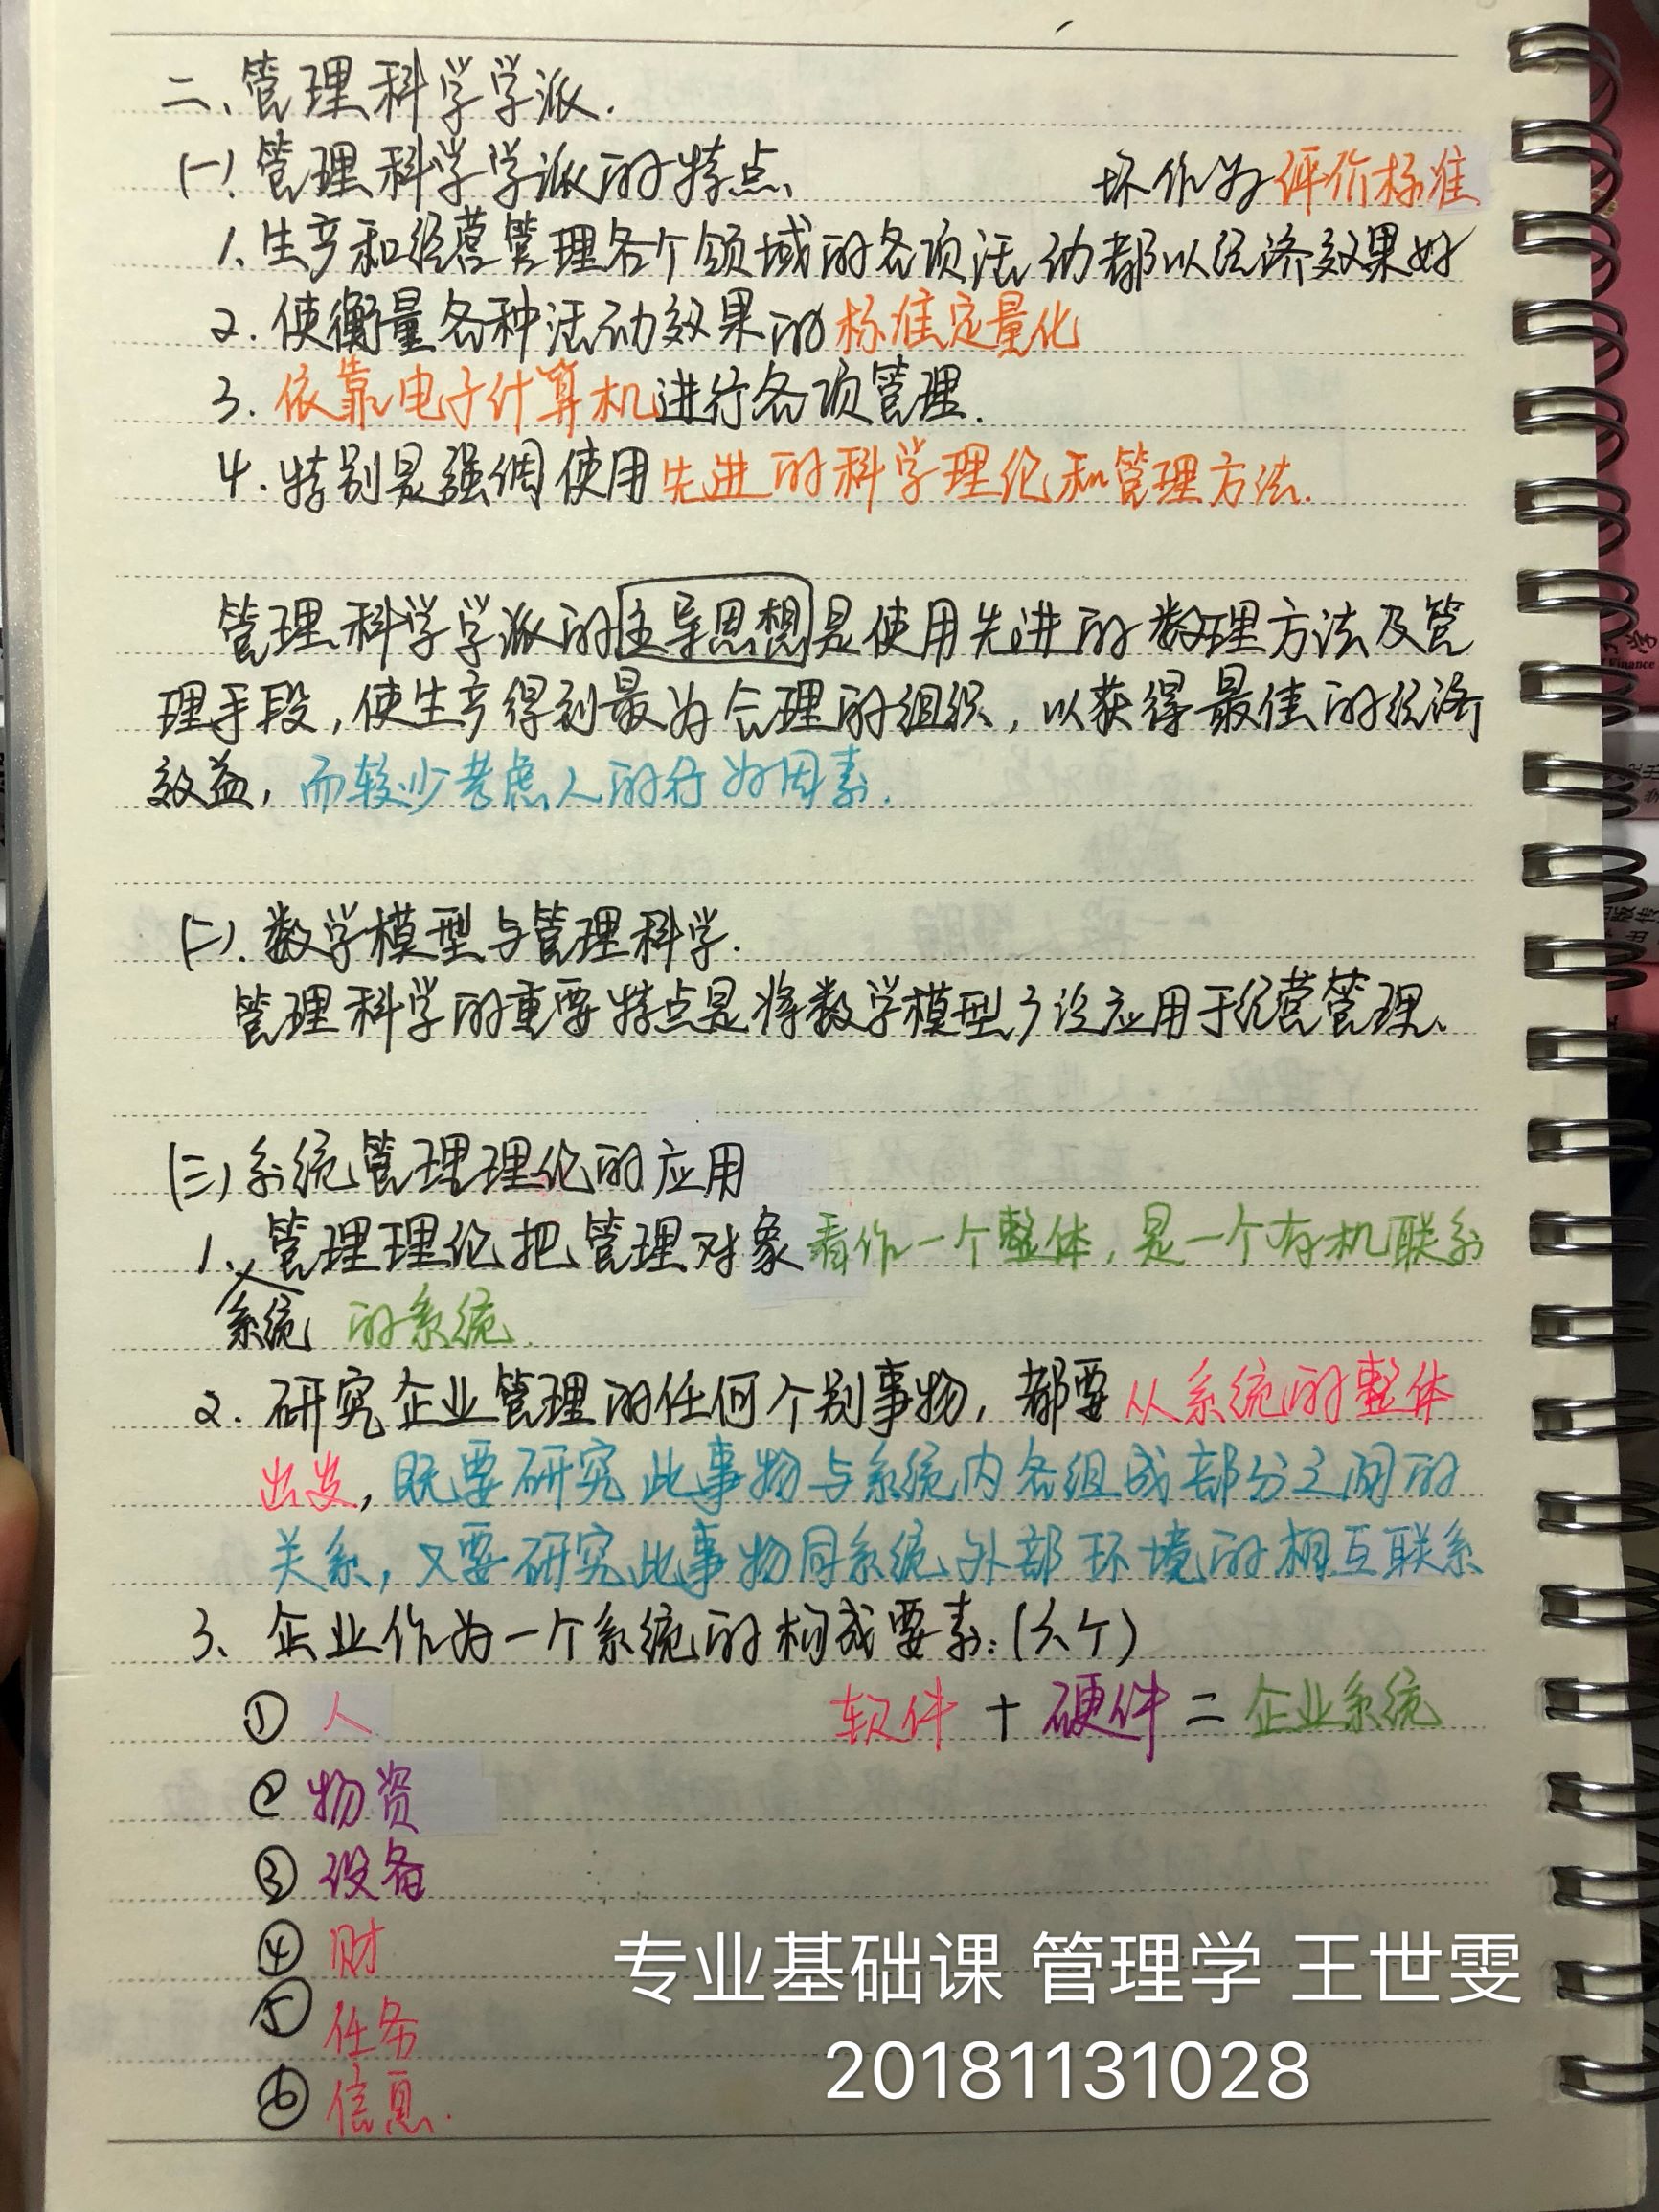 二、管理科学学派.
(一).管理科学学派的特点、
坏作为评价标准
1、生产和经营管理各个领域的各项活动都以经济效果好
2.使衡量各种活动效果的标准定量化
3.依靠电子计算机进行各项管理.
4.特别是强调使用先进的科学理论和管理方法.
管理科学学派的主导思想是使用先进的数理方法及管
理手段,使生产得到最为合理的组织,以获得最佳的经济
效益,而较少考虑人的行为因素.
(二).数学模型与管理科学.
管理科学的重要特点是将数学模型广泛应用于经营管理、
(三)系统管理理论的应用
1、管理理论把管理对象看作一个整体,是一个有机联系
系统 的系统.
2.研究企业管理的任何个别事物,都要从系统的整体
出发,既要研究此事物与系统内各组成部分之间的
关系,又要研究此事物同系统外部环境的相互联系
3、企业作为一个系统的构成要素:(六个)
① 人
软件+硬件=企业系统
② 物资
③ 设备
④ 财
⑤ 任务
⑥ 信息.
专业基础课 管理学 王世雯
20181131028